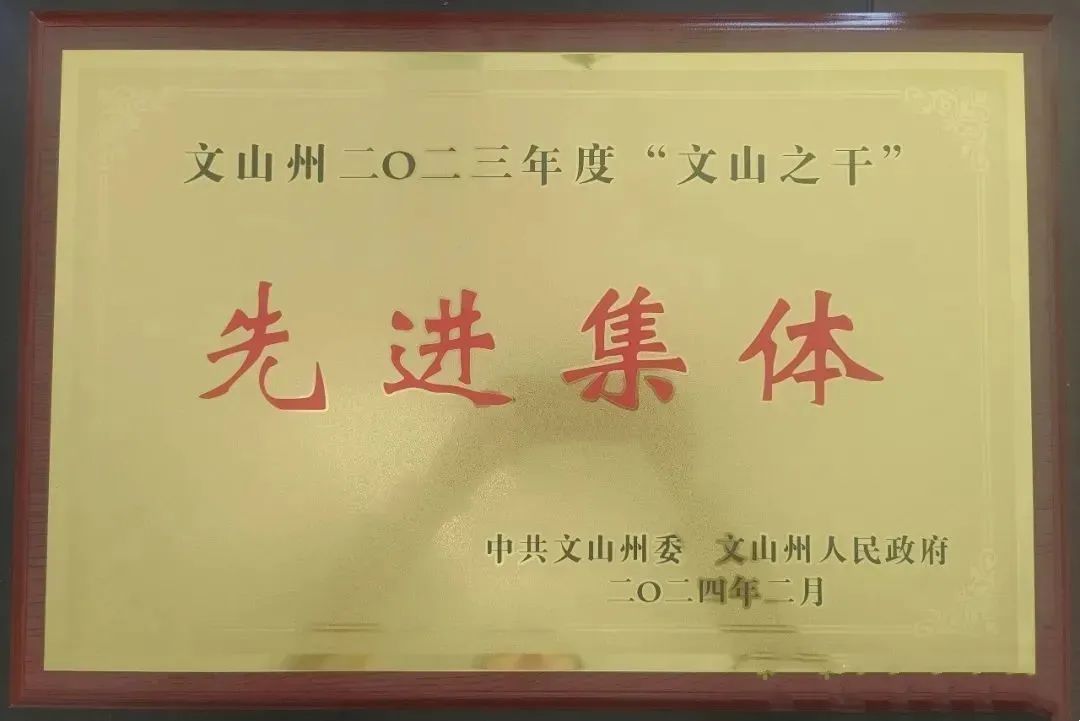 文山州二〇二三年度“文山之干”
先进集体
中共文山州委 文山州人民政府
二〇二四年二月